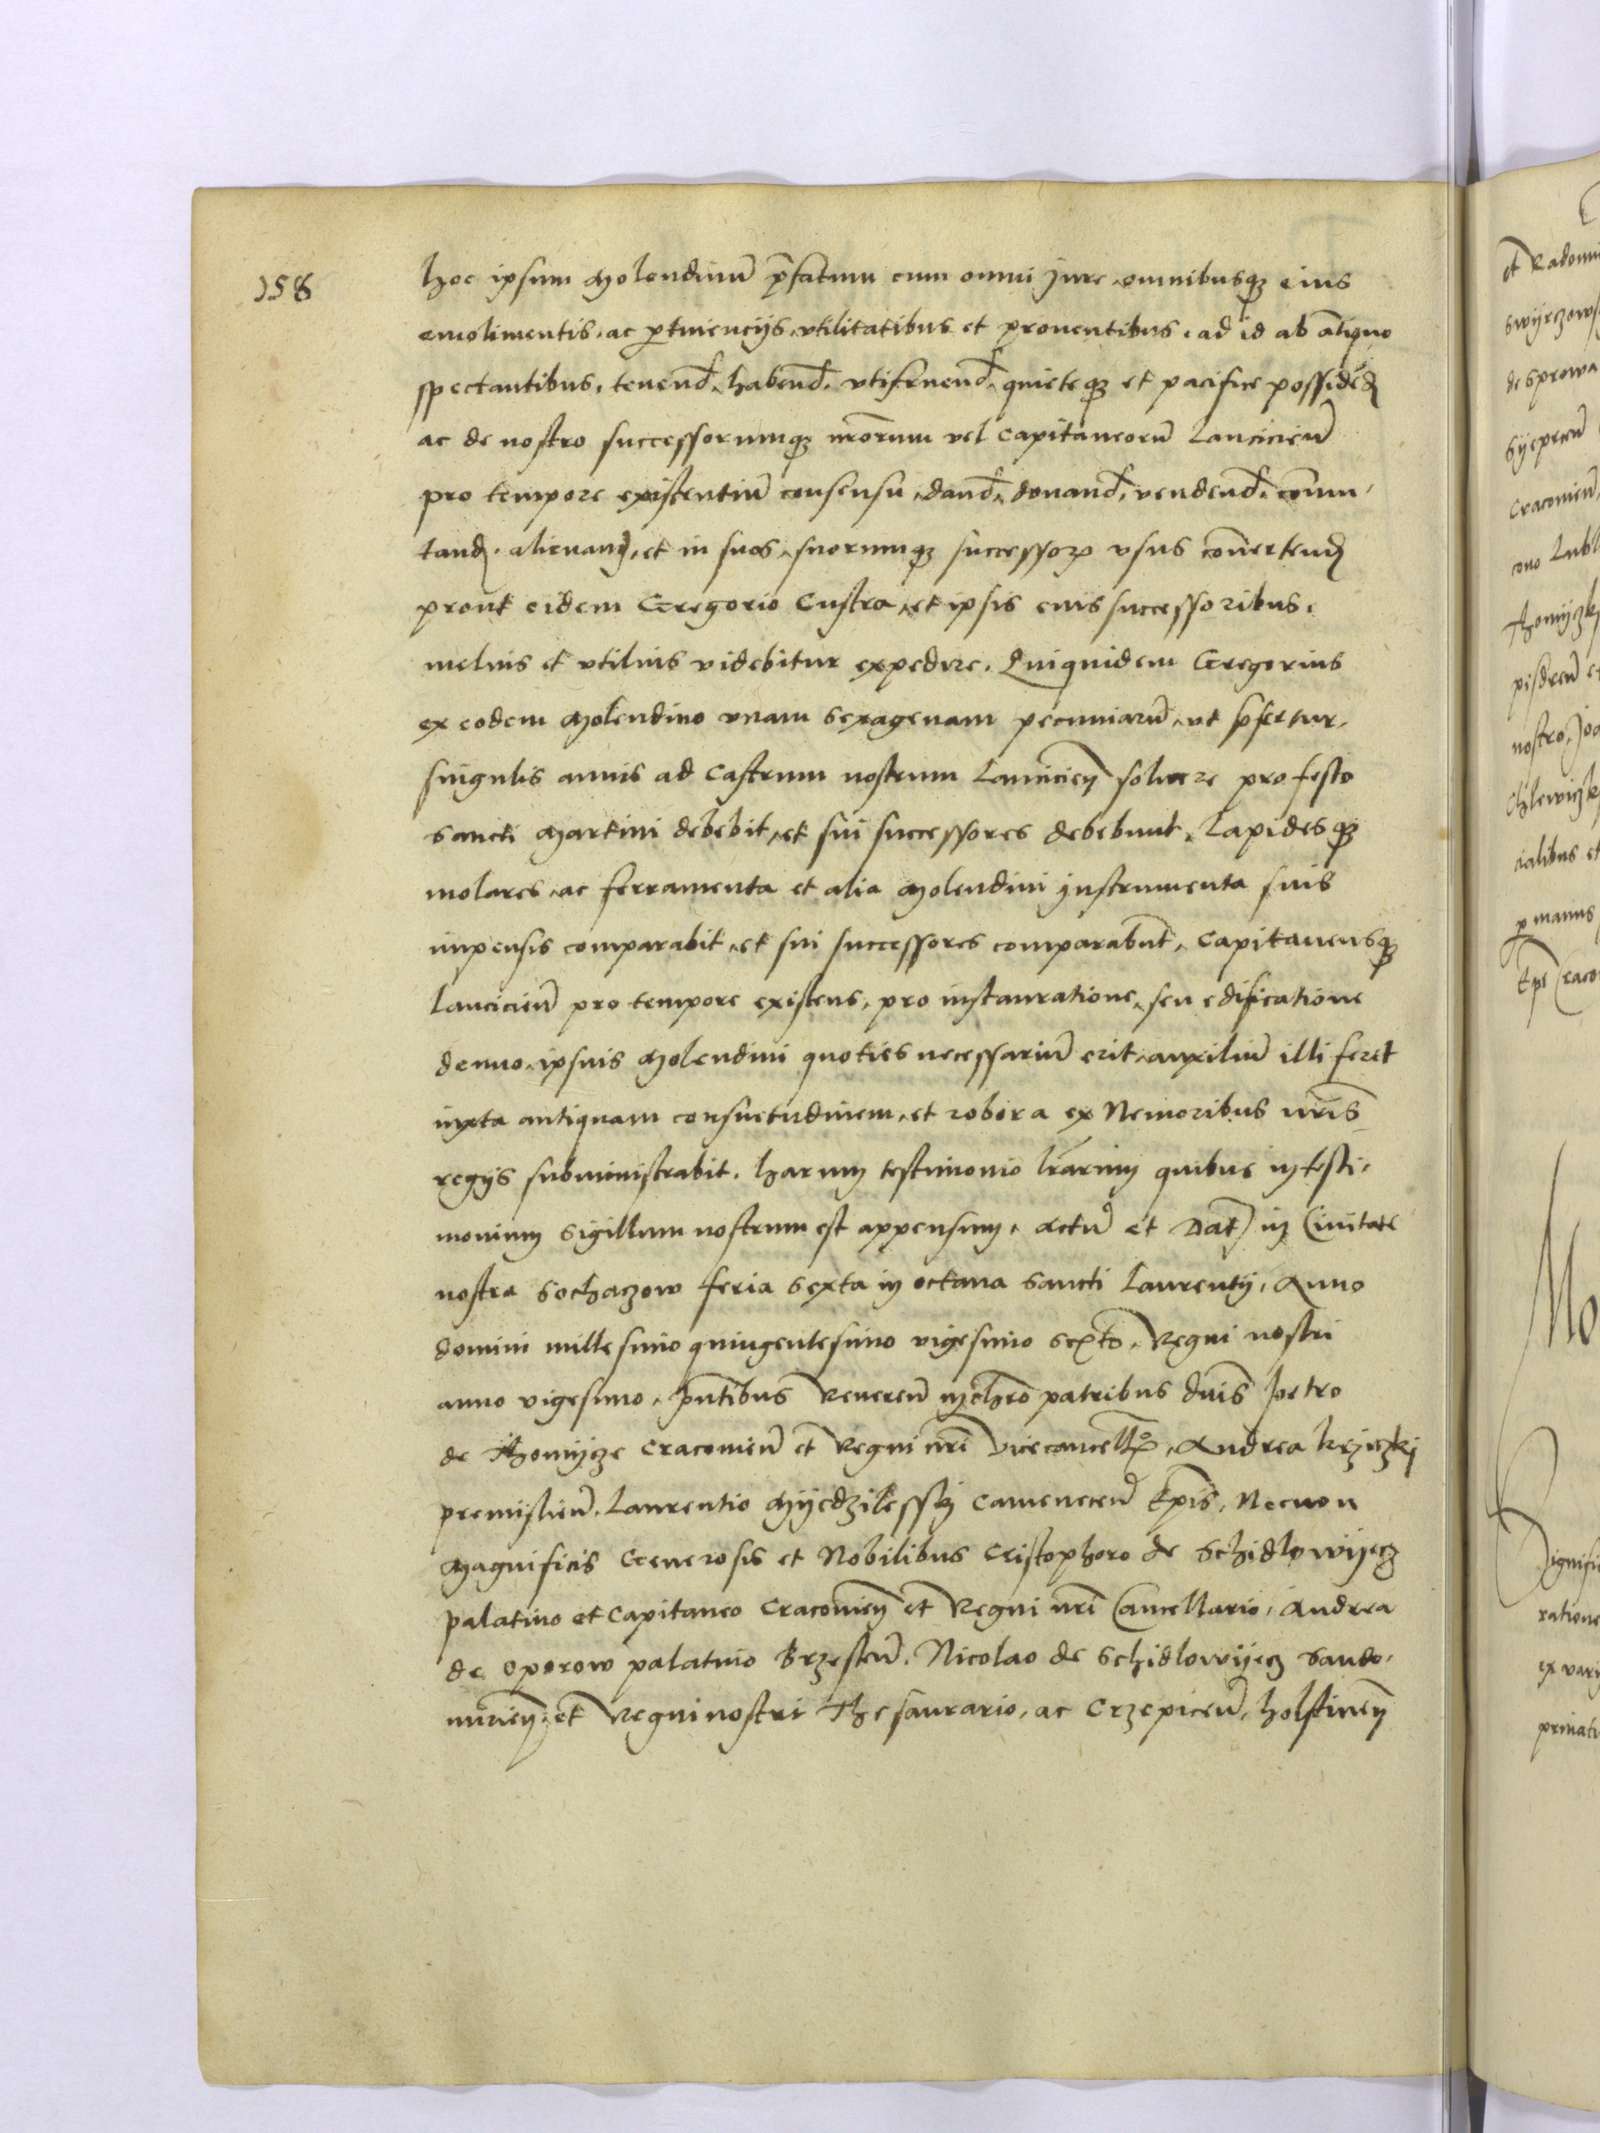 158
hoc ipsum Molendinu p̄fatum cum omni Jure, omnibusq; eius
emolimentis, ac ꝑtinencijs, vtilitatibus et prouentibus, ad id ab ātiquo
spectantibus, tenend, habend, vtifruend, quieteq; et pacifice possidēd
ac de nostro successorumq; nrorum vel Capitaneoru Lancicien
pro tempore existentiu consensu, dand, donand, vendend, comu,
tand, alienand, et in suos, suorumq; successoꝝ vsus conuertend
prout eidem Gregorio Custra, et ipsis euis successoribus,
melius et vtilius videbitur expedire, Quiquidem Gregorius
ex eodem Molendino vnam sexagenam pecuniaru, vt p̄fertur,
singulis annis ad Castrum nostrum Lancicien soluere pro festo
Sancti Martini debebit, et sui successores debebunt, Lapidesq;
molares, ac ferramenta et alia Molendini Instrumenta suis
impensis comparabit, et sui successores comparabunt, Capitaneusq;
Lancicien pro tempore existens, pro instauratione, seu edificatione
denuo, ipsius Molendini quoties necessariu erit, auxiliu illi feret
iuxta antiquam consuetudinem, et robora ex Nemoribus nris
regijs subministrabit, harum testimonio lrarum quibus in testi,
monium Sigillum nostrum est appensum, Actu et Dat in Ciuitate
nostra Sochaczow feria sexta in octaua Sancti Laurentij, Anno
domini millesimo quingentesimo vigesimo sexto, Regni nostri
anno vigesimo, pntibus Reueren in chro patribus dnis Petro
de Thomijcze Cracouien et Regni nri vicecancellº, Andrea Krziczkj
premislien, Laurentio Myedzileskj Camenecen Epis, Necnon
Magnificis Generosis et Nobilibus Cristophoro de Schidlowijecz
palatino et Capitaneo Cracouien et Regni nri Cancellario, Andrea
de Oporow palatino Brzesten, Nicolao de Schidlowijecz Sando,
mirien, et Regni nostri Thesaurario, ac Crzepicen, holstinen